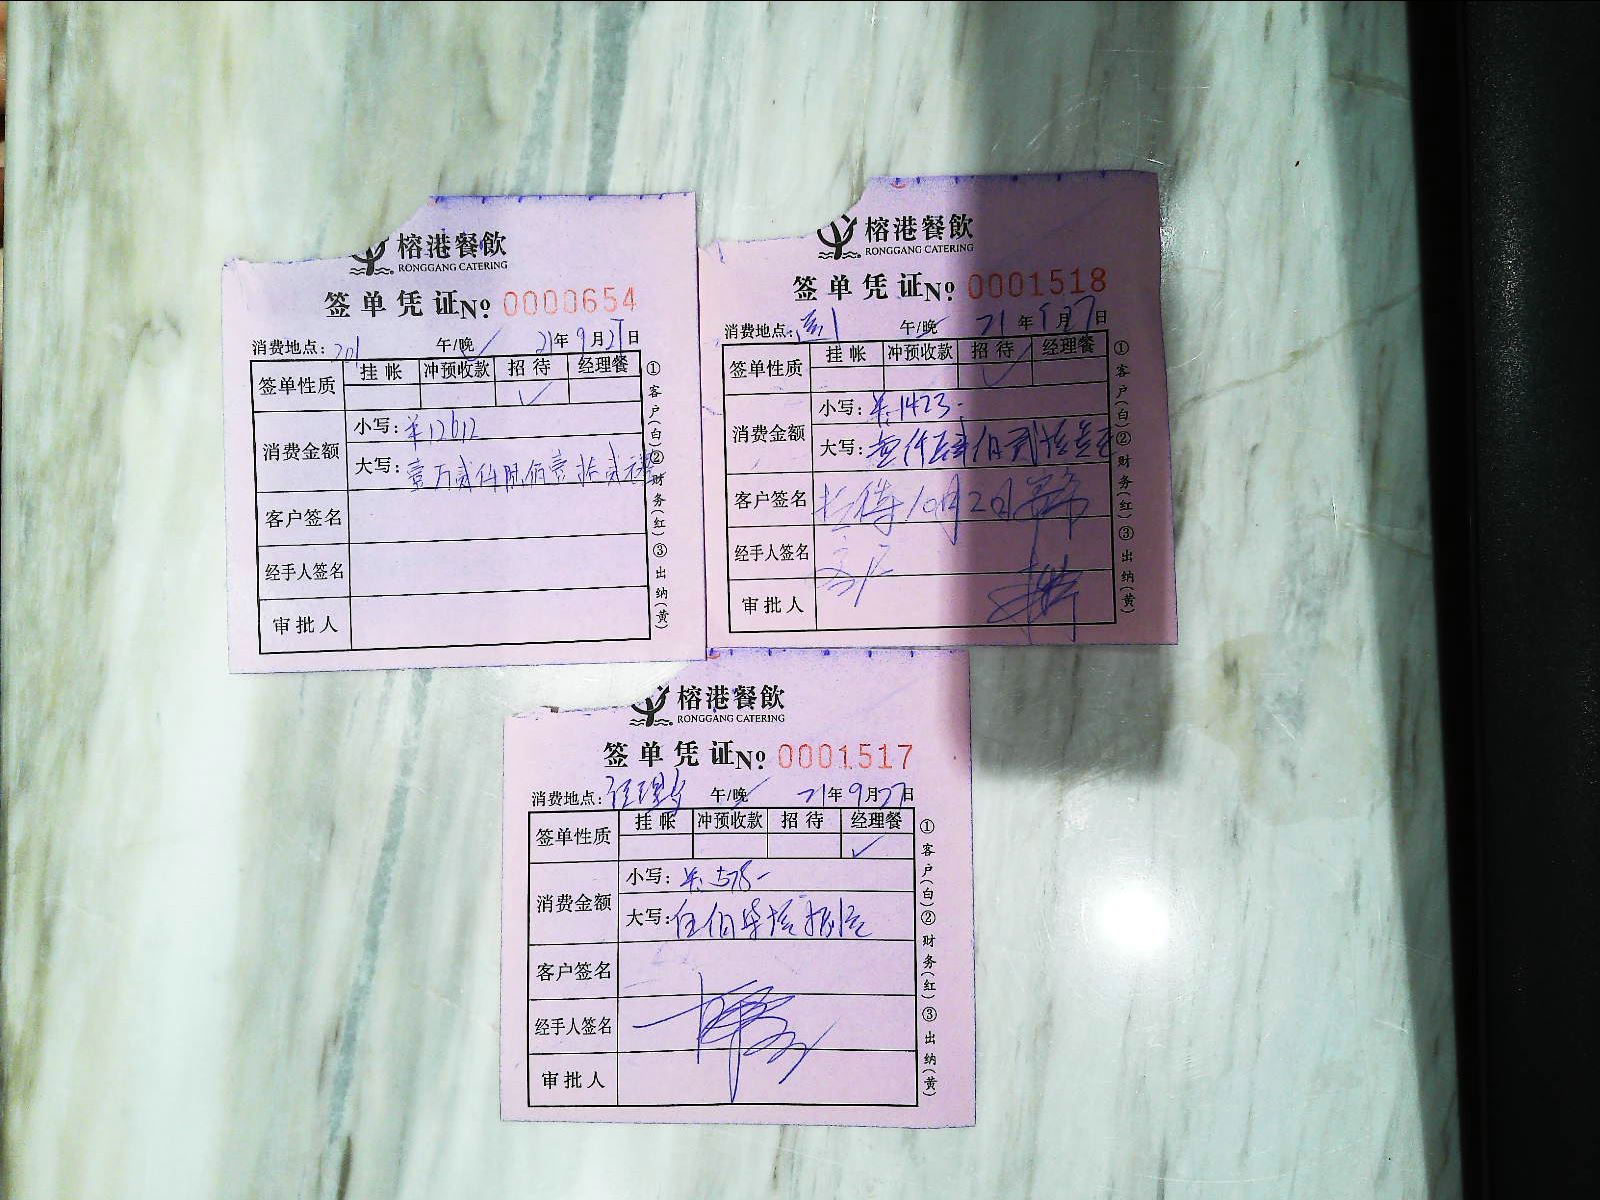 榕港餐飲
RONGGANG CATERING
签单凭证 No 0000654
消费地点: 201 午/晚 21年9月27日
签单性质 挂帐 冲预收款 招待 经理餐
消费金额
小写: ¥12612
大写: 壹万贰仟陆佰壹拾贰元整
客户签名
经手人签名
审批人
①客户(白)②财务(红)③出纳(黄)
榕港餐飲
RONGGANG CATERING
签单凭证 No 0001518
消费地点: 午/晚 21年9月27日
签单性质 挂帐 冲预收款 招待 经理餐
消费金额
小写: ¥:1423.-
大写: 壹仟肆佰贰拾叁元
客户签名 招待10月2日
经手人签名
审批人
①客户(白)②财务(红)③出纳(黄)
榕港餐飲
RONGGANG CATERING
签单凭证 No 0001517
消费地点: 经理餐 午/晚 21年9月27日
签单性质 挂帐 冲预收款 招待 经理餐
消费金额
小写: ¥:578-
大写: 伍佰柒拾捌元
客户签名
经手人签名
审批人
①客户(白)②财务(红)③出纳(黄)